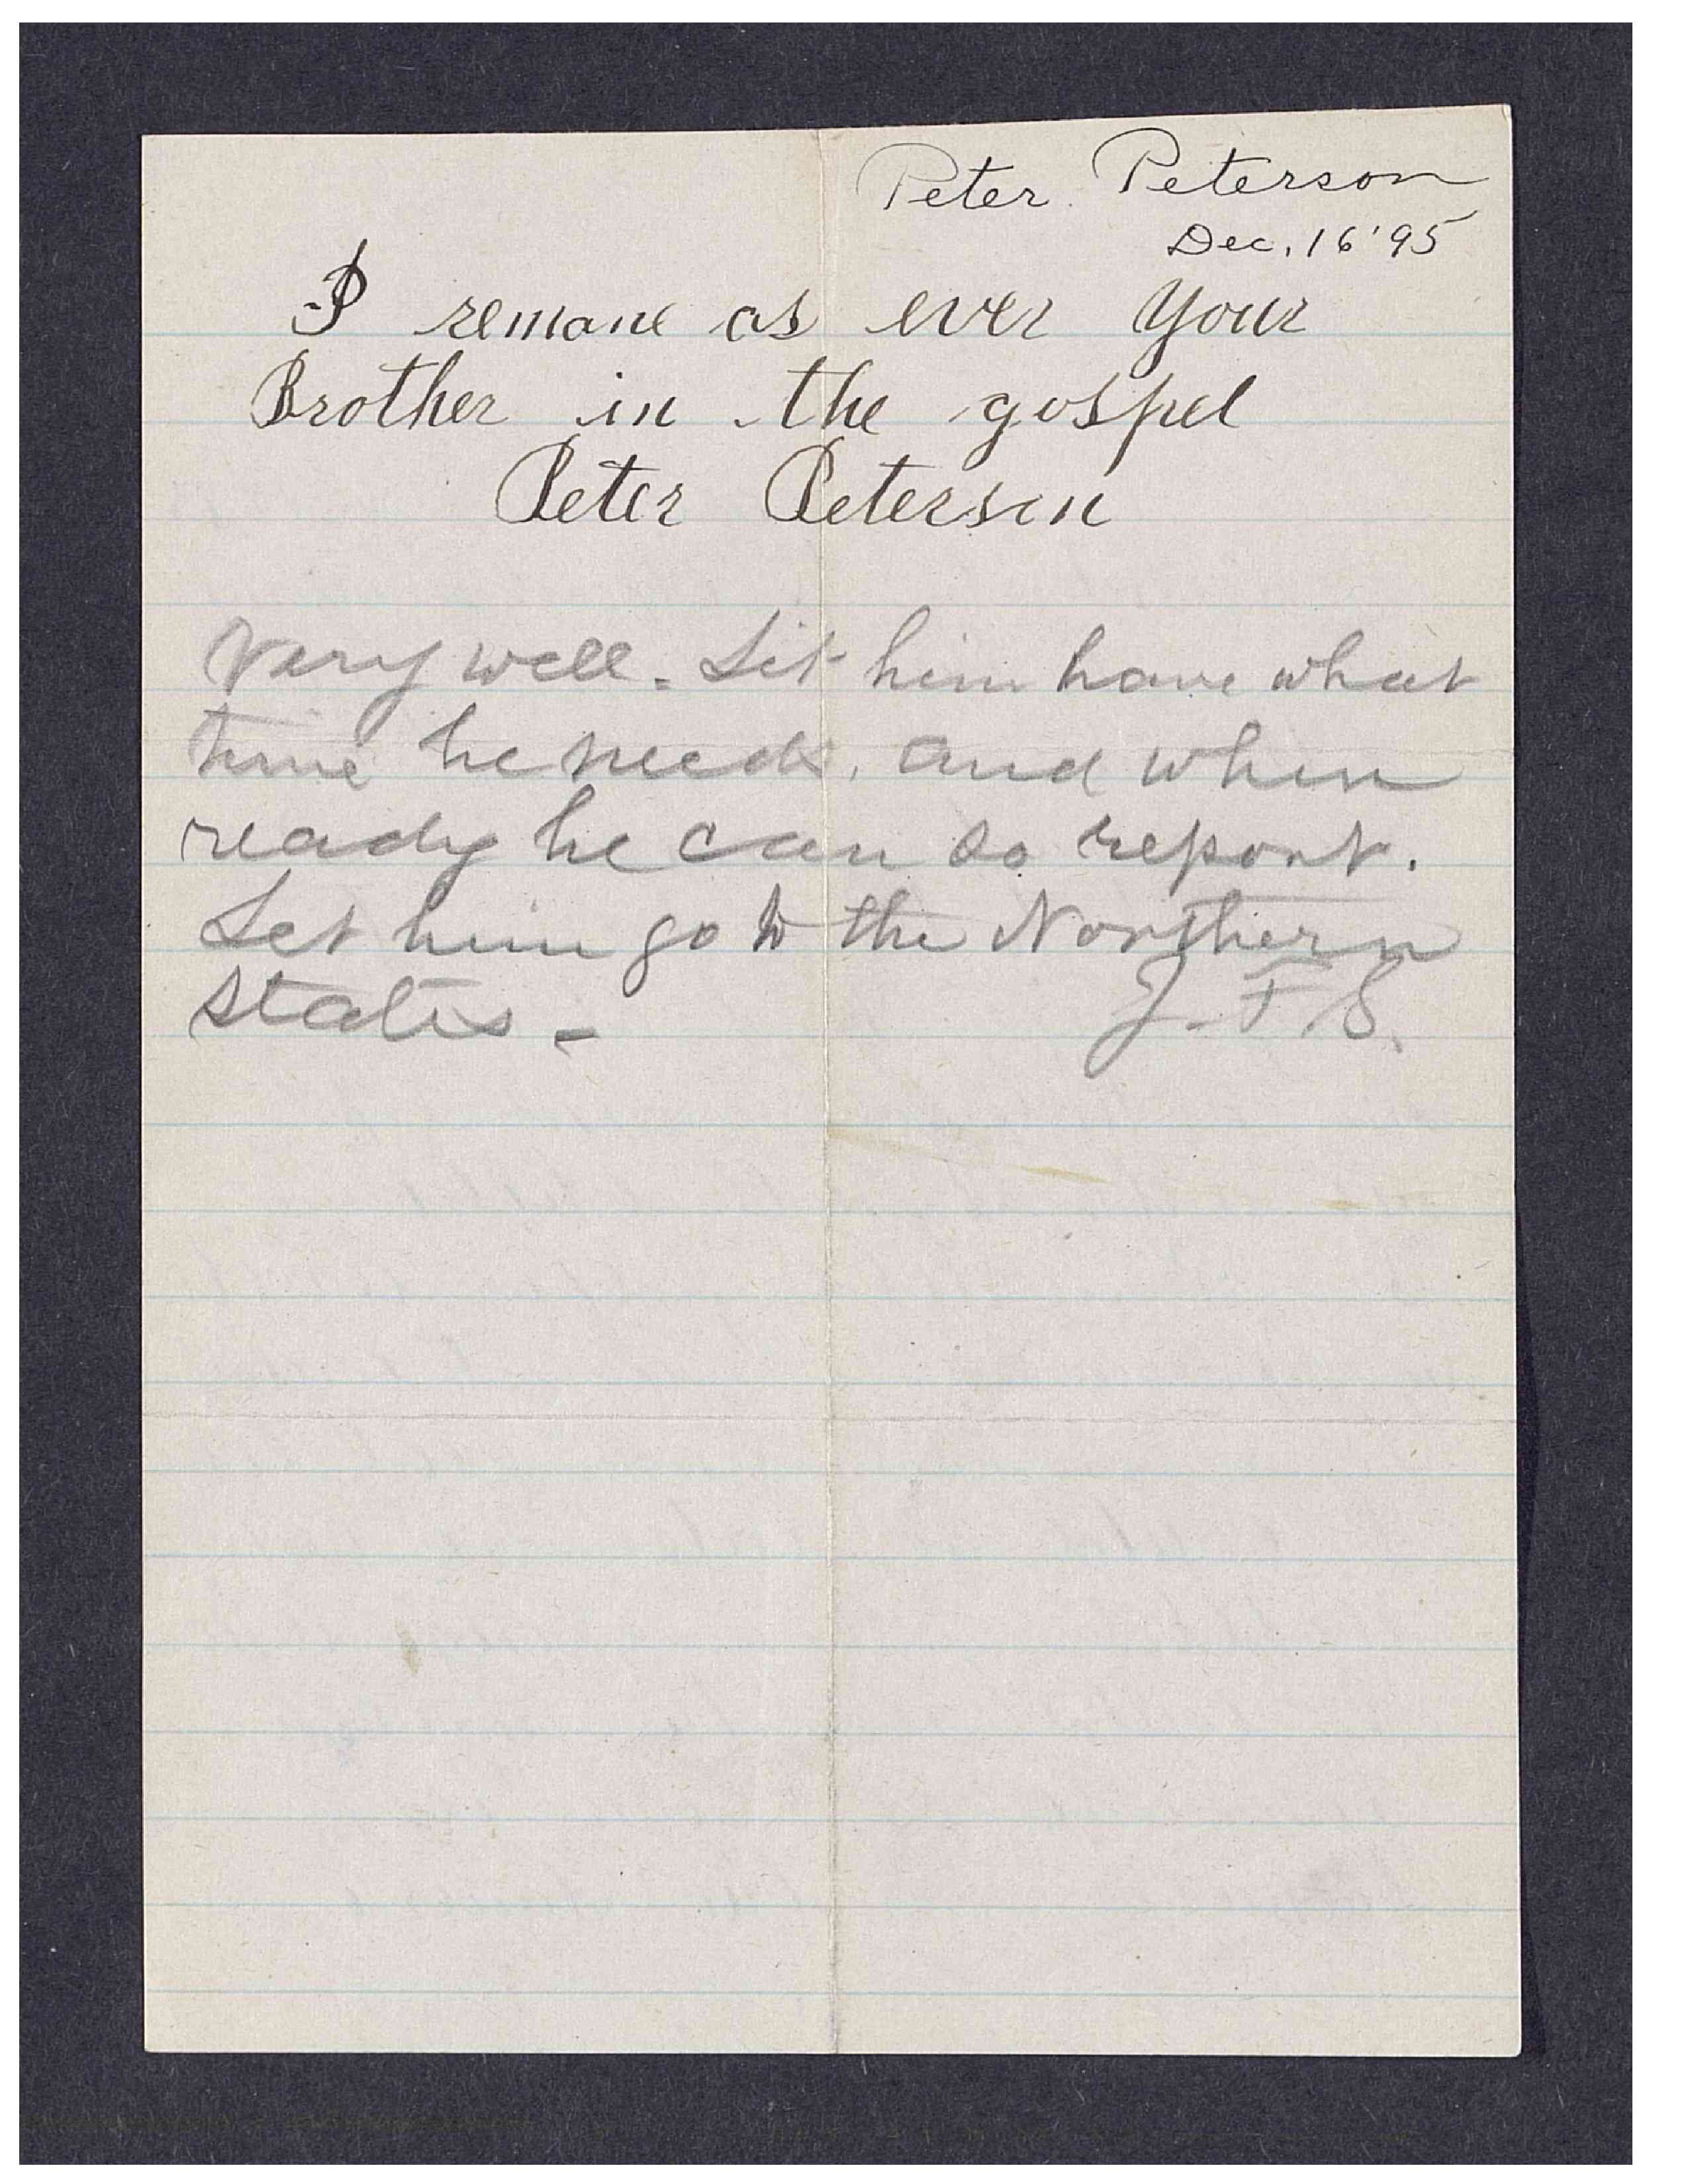 Peter Peterson
Dec. 16 '95
I remane as ever your
Brother in the gospel
Peter Peterson
Very well. Let him have what
time he needs, and when
ready he can so report.
Let him go to the Northern
States.
J. F. S.